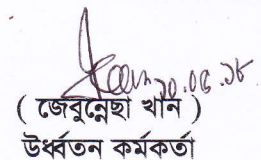 ২০.০৫.১৮
( জেবুন্নেছা খান )
উর্ধ্বতন কর্মকর্তা